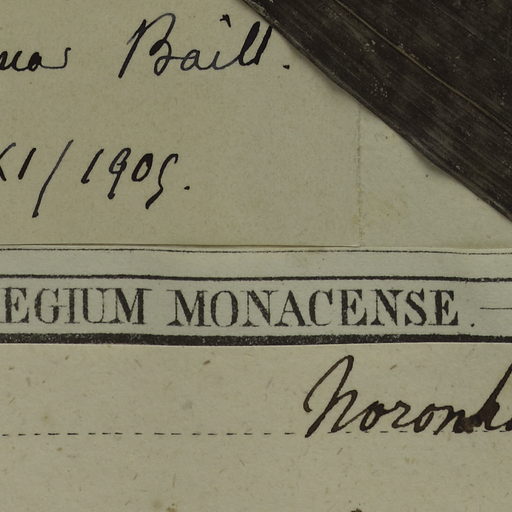 Baill.
XI/1905.
EGIUM MONACENSE.
Noronh